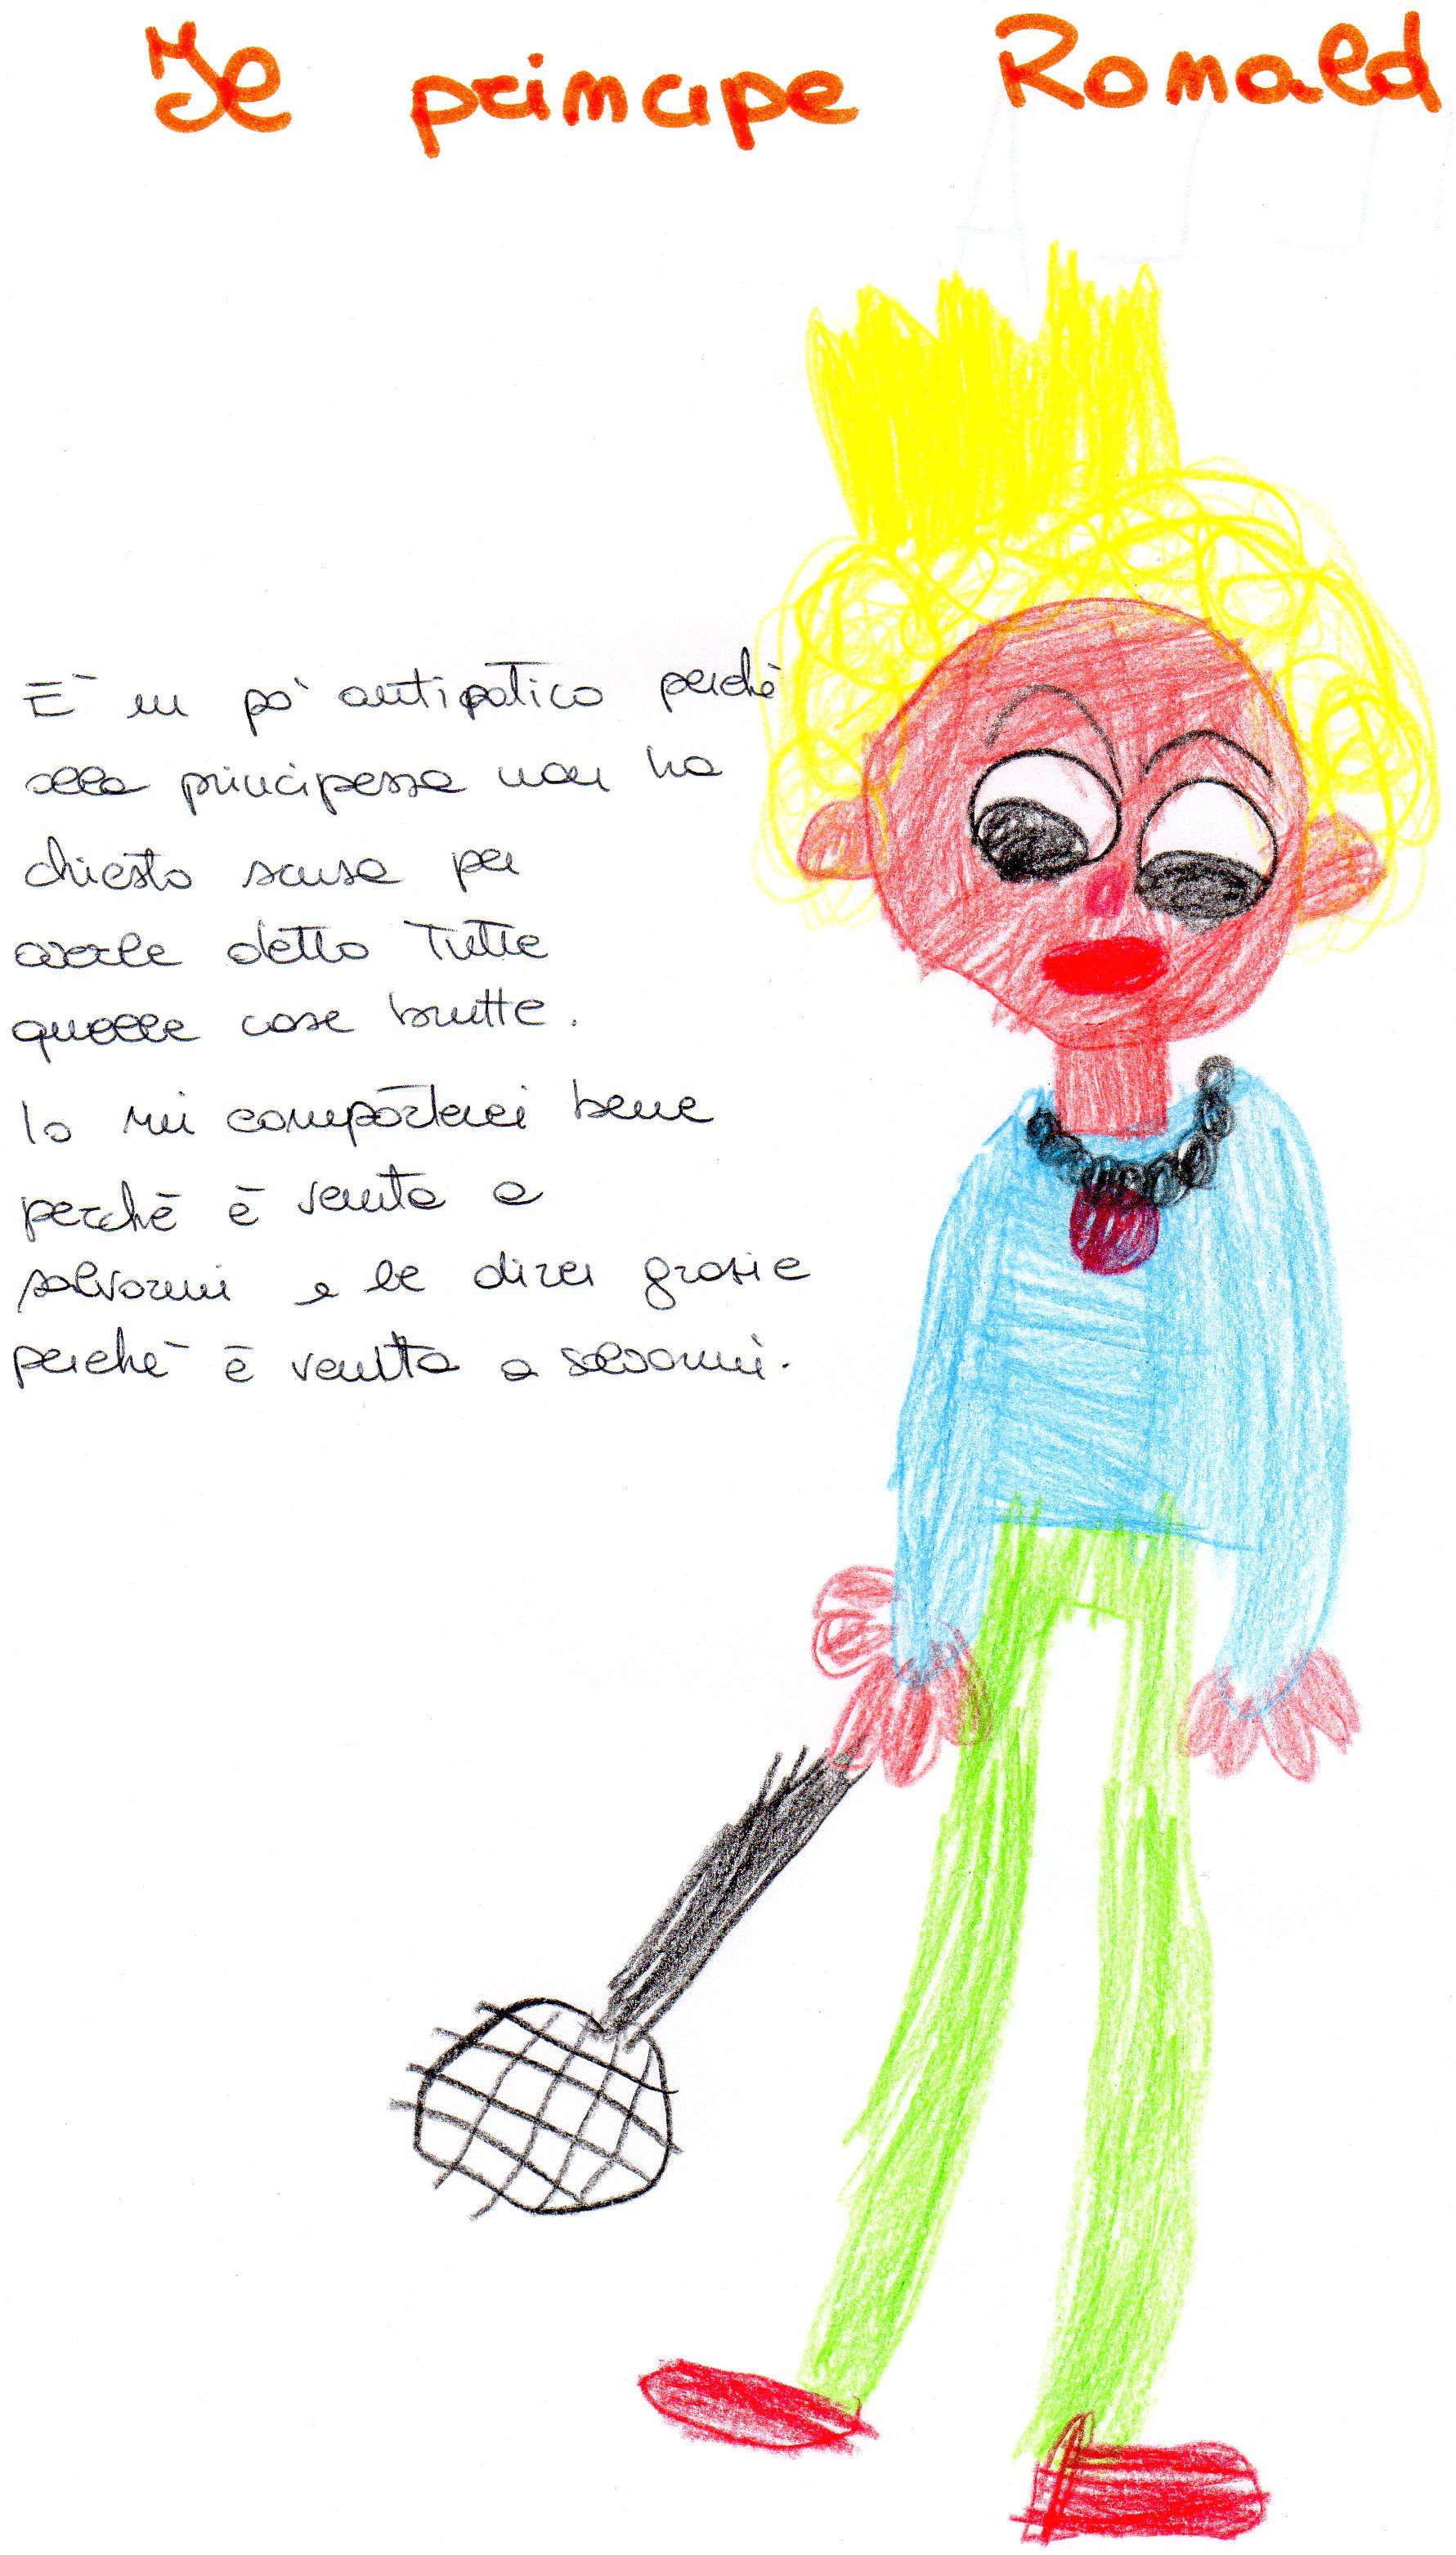 Il principe Romald
È un pò antipatico perchè
alla principessa non ha
chiesto scusa per
averle detto tutte
quelle cose brutte.
Io mi comporterei bene
perchè è venuta a
salvarmi e le direi grazie
perchè è venuta a salvarmi.